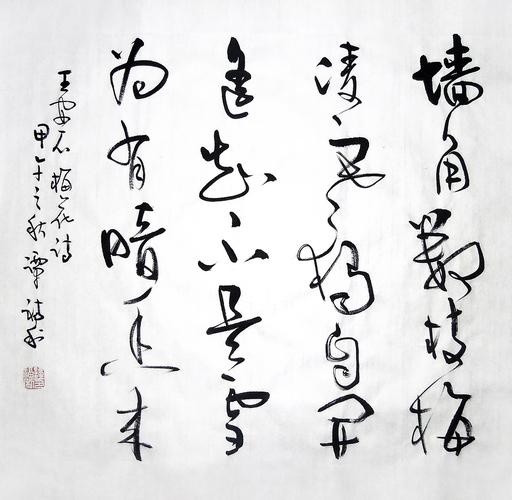 墙角数枝梅
凌寒独自开
遥知不是雪
为有暗香来
王安石 梅花诗
甲午之秋 谭